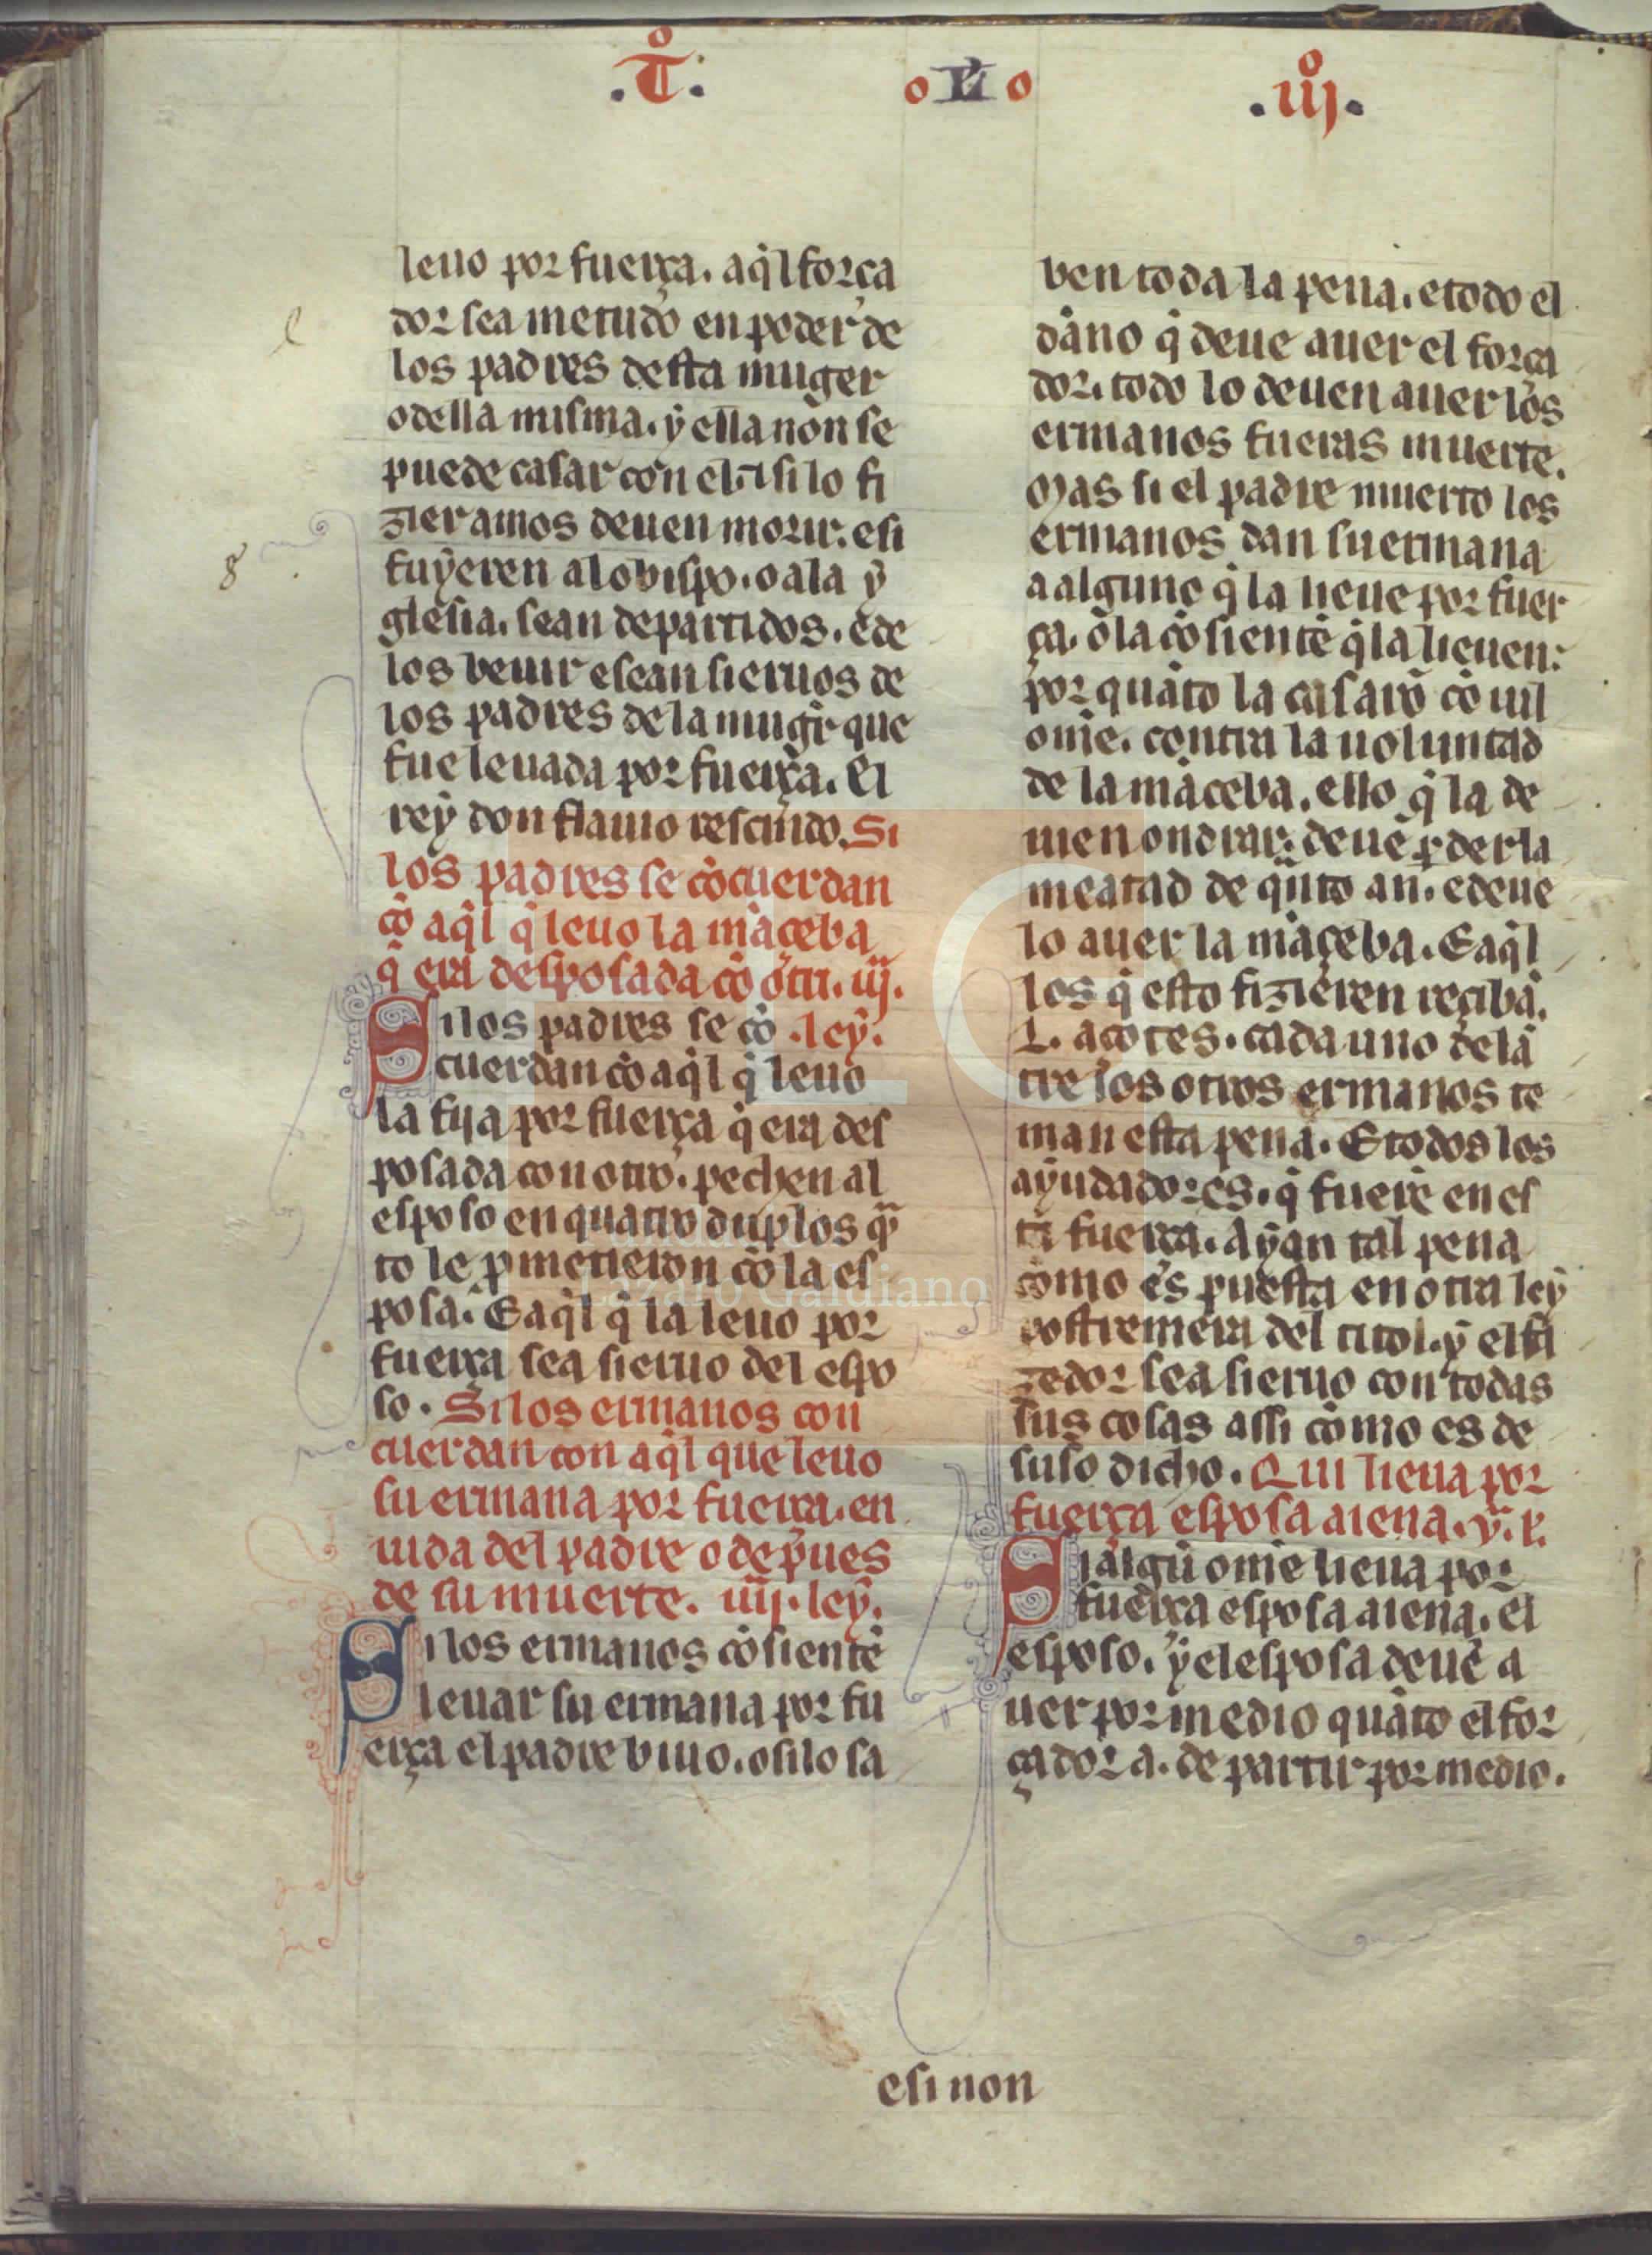 .T̊. o Lı o .iıj̊.
leuo por fuerça. aq̃l força
dor sea metudo en poder de
los padres desta muger
o della misma. ẏ ella non se
puede casar con el. ⁊ si lo fi
zier amos deuen morir. e si
fuẏeren al obispo. o a la ẏ
glesia. sean departidos. e de
los beuir e sean sieruos de
los padres de la mug̃r que
fue leuada por fuerça. El
reẏ don flauio rescindo. Si
los padres se cõcuerdan
cõ aq̃l q̃ leuo la mãçeba
q̃ era desposada cõ otri. iij.
Si los padres se cõ .leẏ.
cuerdan cõ aq̃l q̃ leuo
la fija por fuerça q̃ era des
posada con otro. pechen al
esposo en quatro duplos q̃n
to le p̃metieron cõ la es
posa. E aq̃l q̃ la leuo por
fuerça sea sieruo del espo
so. Si los ermanos con
cuerdan con aq̃l que leuo
su ermana por fuerça. en
uida del padre o depues
de su muerte. iiij. leẏ.
Si los ermanos cõsientẽ
leuar su ermana por fu
erça el padre biuo. o si lo sa
ben toda la pena. e todo el
dãno q̃ deue auer el força
dor. todo lo deuen auer los
ermanos fueras muerte.
Mas si el padre muerto los
ermanos dan su ermana
a alguno q̃ la lieue por fuer
ça. o la cõsientẽ q̃ la lieuen:
por quãto la casarõ cõ uil
ome. contra la uoluntad
de la mãceba. ello q̃ la de
uien ondrar: deuẽ ꝑder la
meatad de q̃nto an. e deue
lo auer la mãçeba. E aq̃l
los q̃ esto fizieren reçibã.
L. açotes. cada uno delã
tre los otros ermanos te
man esta pena. E todos los
aẏudadores. q̃ fuerẽ en es
ta fuerça. aẏan tal pena
como es puesta en otra leẏ
postremera del titol. ẏ el fa
zedor sea sieruo con todas
sus cosas assi como es de
suso dicho. Qui lieua por
fuerça esposa aiena. v̇. l.
Si algũ ome lieua por
fuerça esposa aiena. el
esposo. ẏ el esposa deuẽ a
uer por medio quãto el for
çador a. de partir por medio.
e si non
Lázaro Galdiano